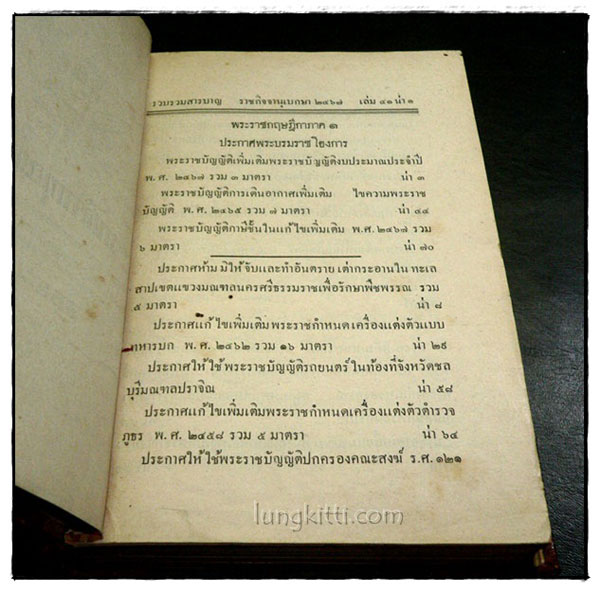 รวบรวมสารบาญ ราชกิจจานุเบกษา ๒๔๖๗ เล่ม ๔๑ น่า ๑
พระราชกฤษฎีกาภาค ๑
ประกาศพระบรมราชโองการ
พระราชบัญญัติเพิ่มเติมพระราชบัญญัติงบประมาณประจำปี
พ.ศ. ๒๔๖๗ รวม ๓ มาตรา น่า ๓
พระราชบัญญัติการเดินอากาศเพิ่มเติม ไขความพระราช
บัญญัติ พ.ศ. ๒๔๖๕ รวม ๗ มาตรา น่า ๔๔
พระราชบัญญัติภาษีชั้นในแก้ไขเพิ่มเติม พ.ศ. ๒๔๖๗ รวม
๖ มาตรา น่า ๗๐
ประกาศห้าม มิให้จับและทำอันตราย เต่ากระอานใน ทะเล
สาปเขตแขวงมณฑลนครศรีธรรมราชเพื่อรักษาพืชพรรณ รวม
๕ มาตรา น่า ๘
ประกาศแก้ไขเพิ่มเติม พระราชกำหนดเครื่องแต่งตัวแบบ
ทหารบก พ.ศ. ๒๔๖๒ รวม ๑๖ มาตรา น่า ๒๙
ประกาศให้ใช้พระราชบัญญัติรถยนตร์ในท้องที่จังหวัดชล
บุรีมณฑลปราจิณ น่า ๕๘
ประกาศแก้ไขเพิ่มเติมพระราชกำหนดเครื่องแต่งตัวตำรวจ
ภูธร พ.ศ. ๒๔๕๘ รวม ๕ มาตรา น่า ๖๔
ประกาศให้ใช้พระราชบัญญัติปกครองคณะสงฆ์ ร.ศ. ๑๒๑
lungkitti.com